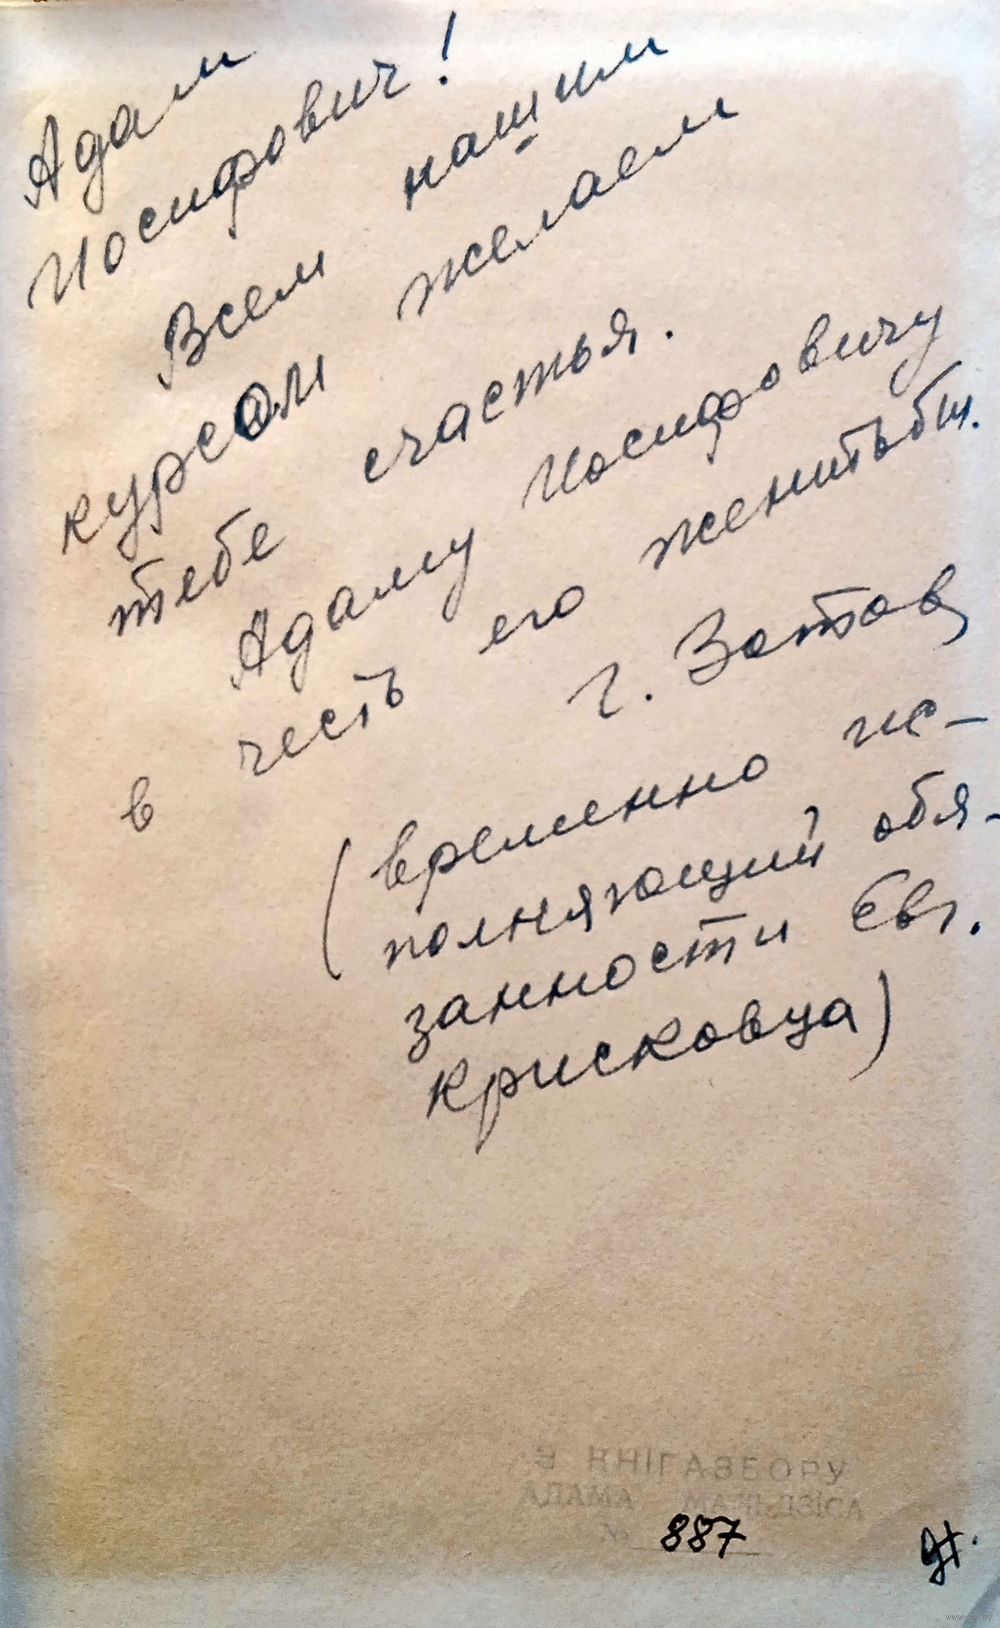 Адам
Иосифович!
Всем нашим
курсом желаем
тебе счастья.
Адаму Иосифовичу
в честь его женитьбы.
Г. Зотов
(временно ис-
полняющий обя-
занности Евг.
Крисковца)
З КНІГАЗБОРУ
АДАМА МАЛЬДЗІСА
№ 887